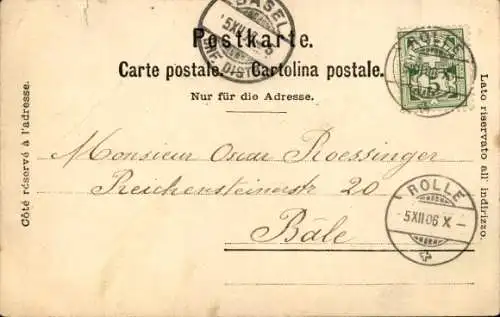 Postkarte.
Carte postale. Cartolina postale.
Nur für die Adresse.
Côté réservé à l'adresse.
Lato riservato all' indirizzo.
BASEL
5XII06
ROLLE
5
Monsieur Oscar Roessinger
Reichensteinerstr 20
Bâle
ROLLE
5XII06 X-